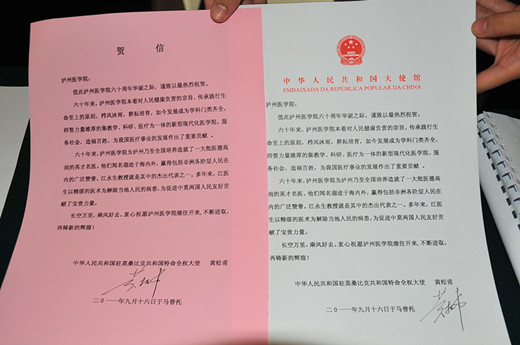 贺 信
泸州医学院:
值此泸州医学院六十周年华诞之际,谨致以最热烈祝贺。
六十年来,泸州医学院本着对人民健康负责的宗旨,传承践行生
命至上的原则,栉风沐雨,群耘培育,如今发展成为学科门类齐全,
师资力量雄厚的集教学、科研、医疗为一体的新型现代化医学院,服
务社会,造福百姓,为我国医疗事业的发展作出了重要贡献。
六十年来,泸州医学院为泸州乃至全国培养造就了一大批医德高
尚的英才名医,他们闻名遐迩于海内外,赢得包括非洲各阶层人民在
内的广泛赞誉。江永生教授就是其中的杰出代表之一。多年来,江医
生以精湛的医术为解除当地人民的病患,为促进中莫两国人民友好贡
献了宝贵力量。
长空万里,乘风好去。衷心祝愿泸州医学院继往开来,不断进取,
再铸新的辉煌!
中华人民共和国驻莫桑比克共和国特命全权大使 黄松甫
二〇一一年九月十六日于马普托
中华人民共和国大使馆
EMBAIXADA DA REPÚBLICA POPULAR DA CHINA
泸州医学院:
值此泸州医学院六十周年华诞之际,谨致以最热烈祝贺。
六十年来,泸州医学院本着对人民健康负责的宗旨,传承践行生
命至上的原则,栉风沐雨,群耘培育,如今发展成为学科门类齐全,
师资力量雄厚的集教学、科研、医疗为一体的新型现代化医学院,服
务社会,造福百姓,为我国医疗事业的发展作出了重要贡献。
六十年来,泸州医学院为泸州乃至全国培养造就了一大批医德高
尚的英才名医,他们闻名遐迩于海内外,赢得包括非洲各阶层人民在
内的广泛赞誉。江永生教授就是其中的杰出代表之一。多年来,江医
生以精湛的医术为解除当地人民的病患,为促进中莫两国人民友好贡
献了宝贵力量。
长空万里,乘风好去。衷心祝愿泸州医学院继往开来,不断进取,
再铸新的辉煌!
中华人民共和国驻莫桑比克共和国特命全权大使 黄松甫
二〇一一年九月十六日于马普托